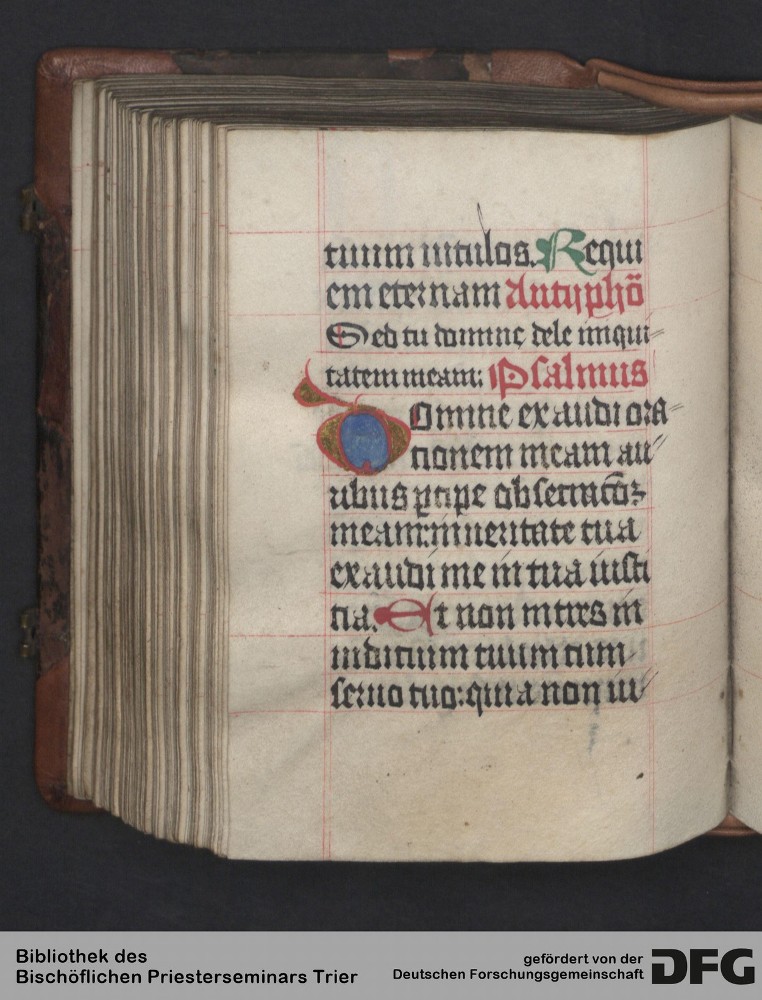 tuum uitulos. Requi
em eternam Antypho᷉
Sed tu domine dele iniqui⸗
tatem meam: Psalmus
Domine exaudi ora⸗
tionem meam au⸗
ribus ꝑcipe obsecratio᷉ꝫ
meam: in ueritate tua
exaudi me in tua iusti
tia. Et non intres in
iuditium tuum cum
seruo tuo: quia non iu⸗
Bibliothek des
Bischöflichen Priesterseminars Trier
gefördert von der
Deutschen Forschungsgemeinschaft
DFG